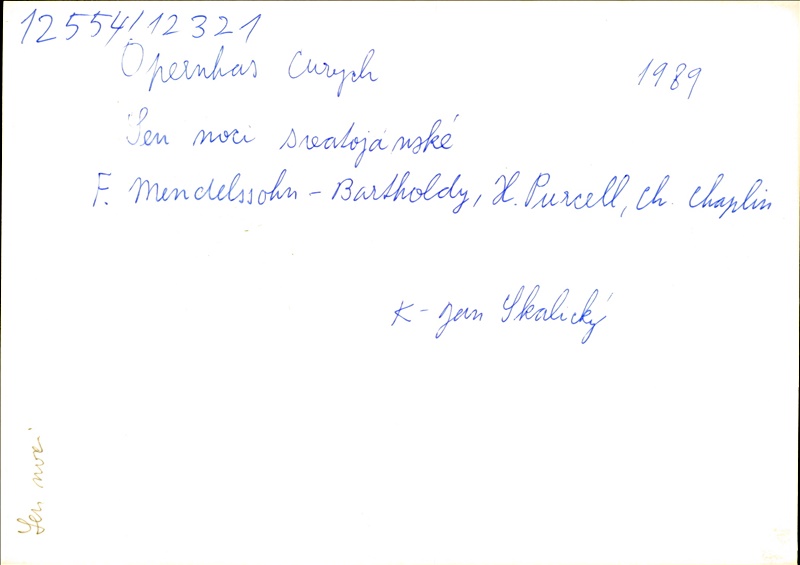 12554/12321
Opernhas Curych 1989
Sen noci svatojánské
F. Mendelssohn - Bartholdy, H. Purcell, Ch. Chaplin
K - Jan Skalický
Sen noci